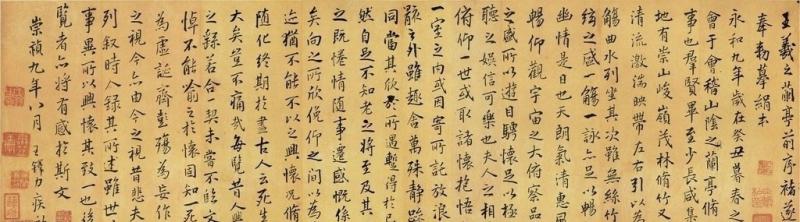 王羲之蘭亭前序褚遂
奉勑摹絹本
永和九年歲在癸丑暮春之
會于會稽山陰之蘭亭脩
事也群賢畢至少長咸集
地有崇山峻嶺茂林脩竹又
清流激湍映帶左右引以
觴曲水列坐其次雖無絲竹
絃之盛一觴一詠亦足以暢
幽情是日也天朗氣清惠風
暢仰觀宇宙之大俯察品
之盛所以遊目騁懷足以極
聽之娛信可樂也夫人之相
俯仰一世或取諸懷抱悟
一室之內或因寄所託放浪
骸之外雖趣舍萬殊靜躁
同當其欣於所遇暫得於己
然自足不知老之將至及其
之既惓情隨事遷感慨係
矣向之所欣俛仰之間以為
迹猶不能不以之興懷況脩
隨化終期於盡古人云死生
大矣豈不痛哉每覽昔人興
之録若合一契未嘗不臨文
悼不能喻之於懷固知一死
為虛誕齊彭殤為妄作
之視今亦由今之視昔悲夫
列叙時人錄其所述雖世
事異所以興懷其致一也後
覽者亦將有感於斯文
崇禎九年八月 王鐸力疾